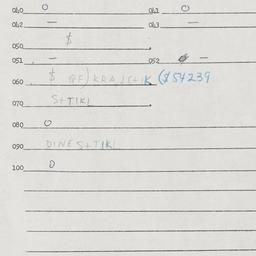 040 0 041 0
042 — 043 —
$
050
051 — 052 —
060 $ ($54239
070 S+TIKI
080 0
090 DINES+TIKI
100 0